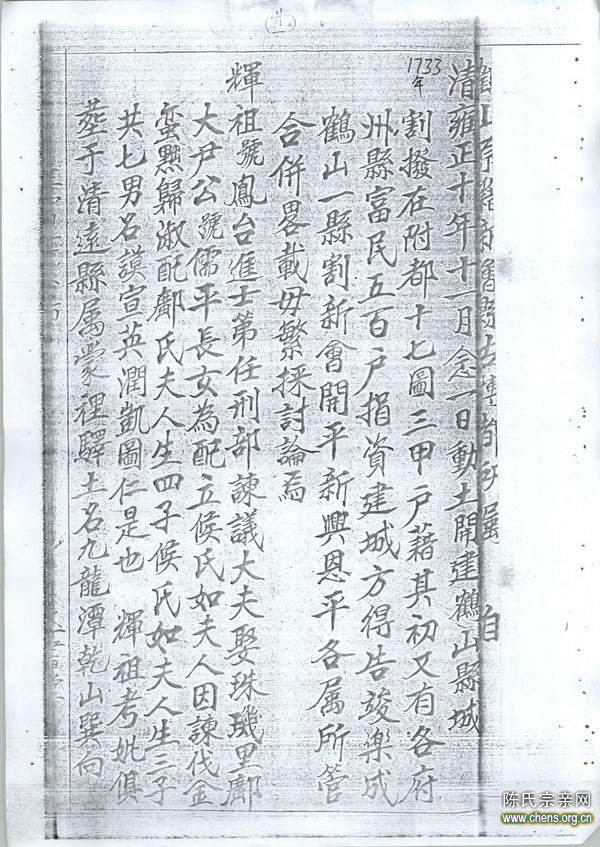 1733年
清雍正十年十一月念一日動土開建鶴山縣城
割撥在附都十七圖三甲戶藉其初又有各府
州縣富民五百戶捐資建城方得告竣樂成
鶴山一縣割新會開平新興恩平各属所管
合併畧載毋繁採討論焉
輝祖號鳳台進士第任刑部諫議大夫娶珠璣里鄺
大尹公號儒平長女為配立侯氏如夫人因諫伐金
蛮黜歸淑配鄺氏夫人生四子侯氏如夫人生三子
共七男名謨宣英潤凱圖仁是也 輝祖考妣俱
塟于清遠縣属濛裡驛土名九龍潭乾山巽向
陈氏宗亲网
www.chens.org.cn